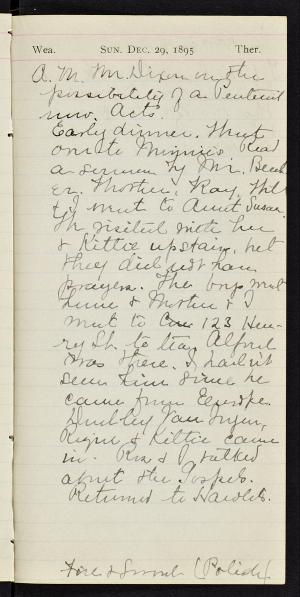 Wea. SUN. DEC. 29, 1895 Ther.
A.M. Mr. Dixon on the
possibility of a Pentecost
now. Acts
Early dinner. Then
on to Minnie's Read
a sermon by Mr. Beech
er. Mortie, Ray, Phil
& I went to Aunt Susan.
I visited with her
& Kittie upstairs, yet
they did not have
prayers. The boys went
home & Mortie & I
went to 123 Hen-
ry St. to tea, Alfred
was there. I hadn't
seen him since he
came from Europe.
Dudley Van
& Kittie came
in. & I talked
about the Gospels.
Returned to Harold's.
Fire & Sword (Polish)